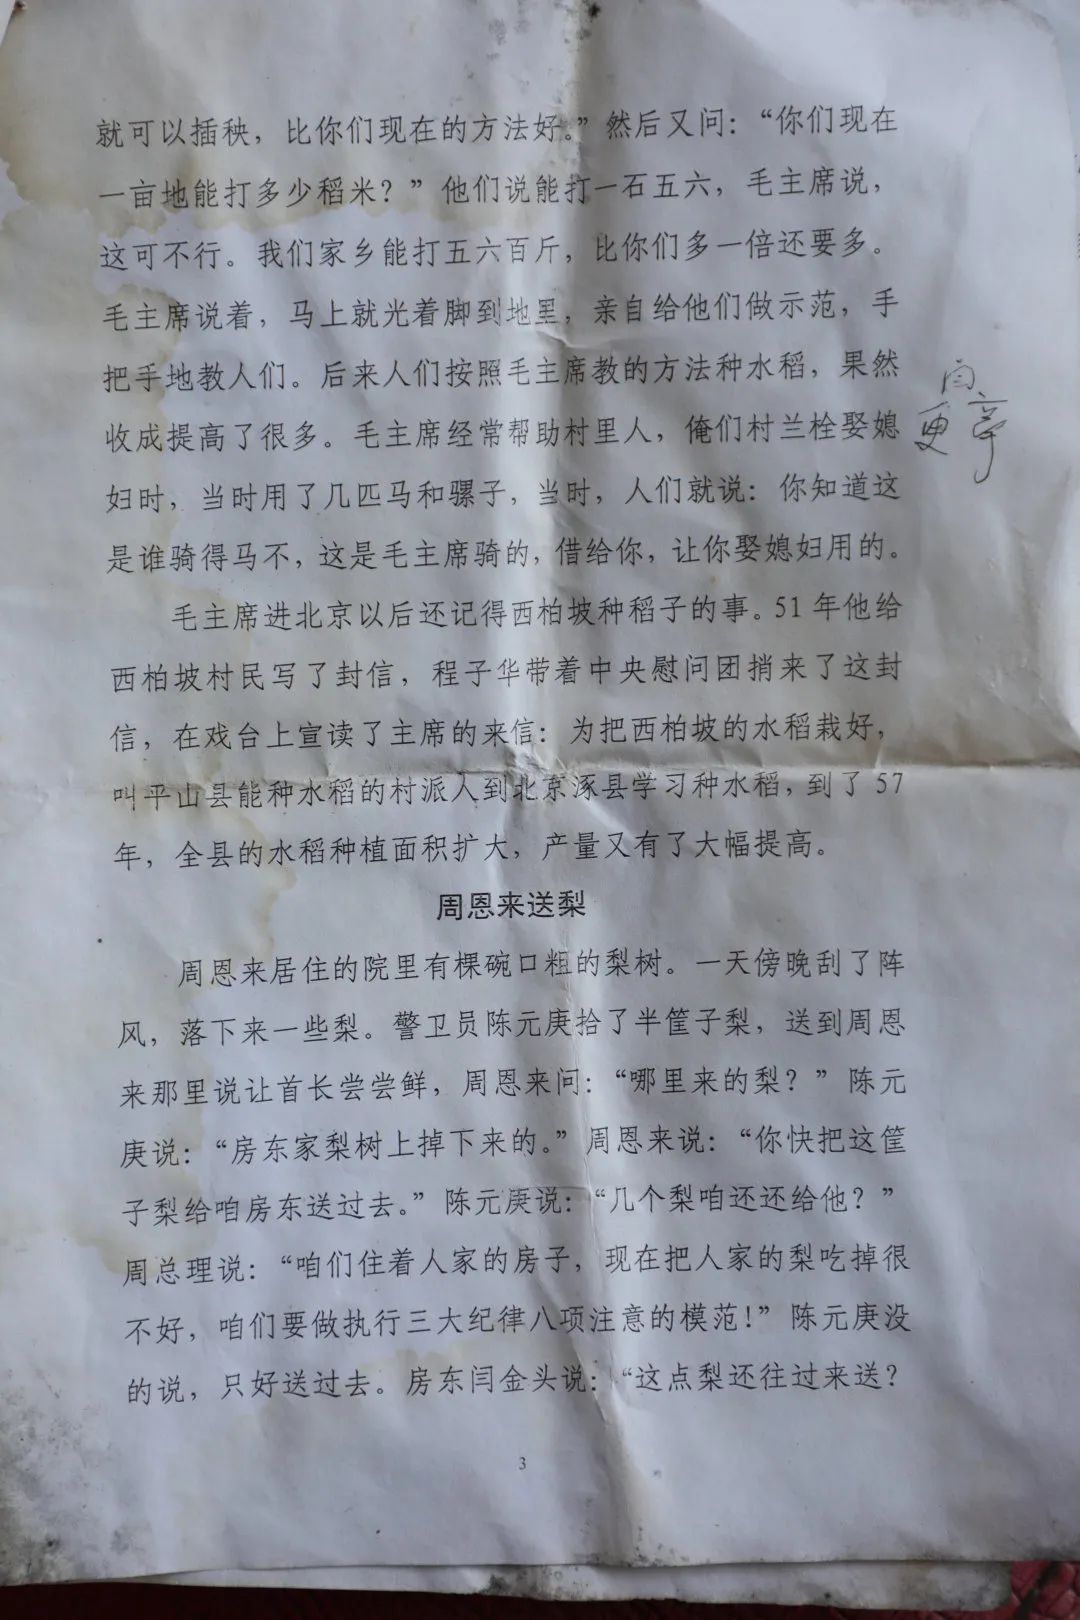 就可以插秧，比你们现在的方法好。”然后又问：“你们现在
一亩地能打多少稻米？”他们说能打一石五六，毛主席说，
这可不行。我们家乡能打五六百斤，比你们多一倍还要多。
毛主席说着，马上就光着脚到地里，亲自给他们做示范，手
把手地教人们。后来人们按照毛主席教的方法种水稻，果然
收成提高了很多。毛主席经常帮助村里人，俺们村兰栓娶媳
妇时，当时用了几匹马和骡子，当时，人们就说：你知道这
是谁骑得马不，这是毛主席骑的，借给你，让你娶媳妇用的。
毛主席进北京以后还记得西柏坡种稻子的事。51年他给
西柏坡村民写了封信，程子华带着中央慰问团捎来了这封
信，在戏台上宣读了主席的来信：为把西柏坡的水稻栽好，
叫平山县能种水稻的村派人到北京涿县学习种水稻，到了57
年，全县的水稻种植面积扩大，产量又有了大幅提高。
周恩来送梨
周恩来居住的院里有棵碗口粗的梨树。一天傍晚刮了阵
风，落下来一些梨。警卫员陈元庚拾了半筐子梨，送到周恩
来那里说让首长尝尝鲜，周恩来问：“哪里来的梨？”陈元
庚说：“房东家梨树上掉下来的。”周恩来说：“你快把这筐
子梨给咱房东送过去。”陈元庚说：“几个梨咱还还给他？”
周总理说：“咱们住着人家的房子，现在把人家的梨吃掉很
不好，咱们要做执行三大纪律八项注意的模范！”陈元庚没
的说，只好送过去。房东闫金头说：“这点梨还往过来送？
3